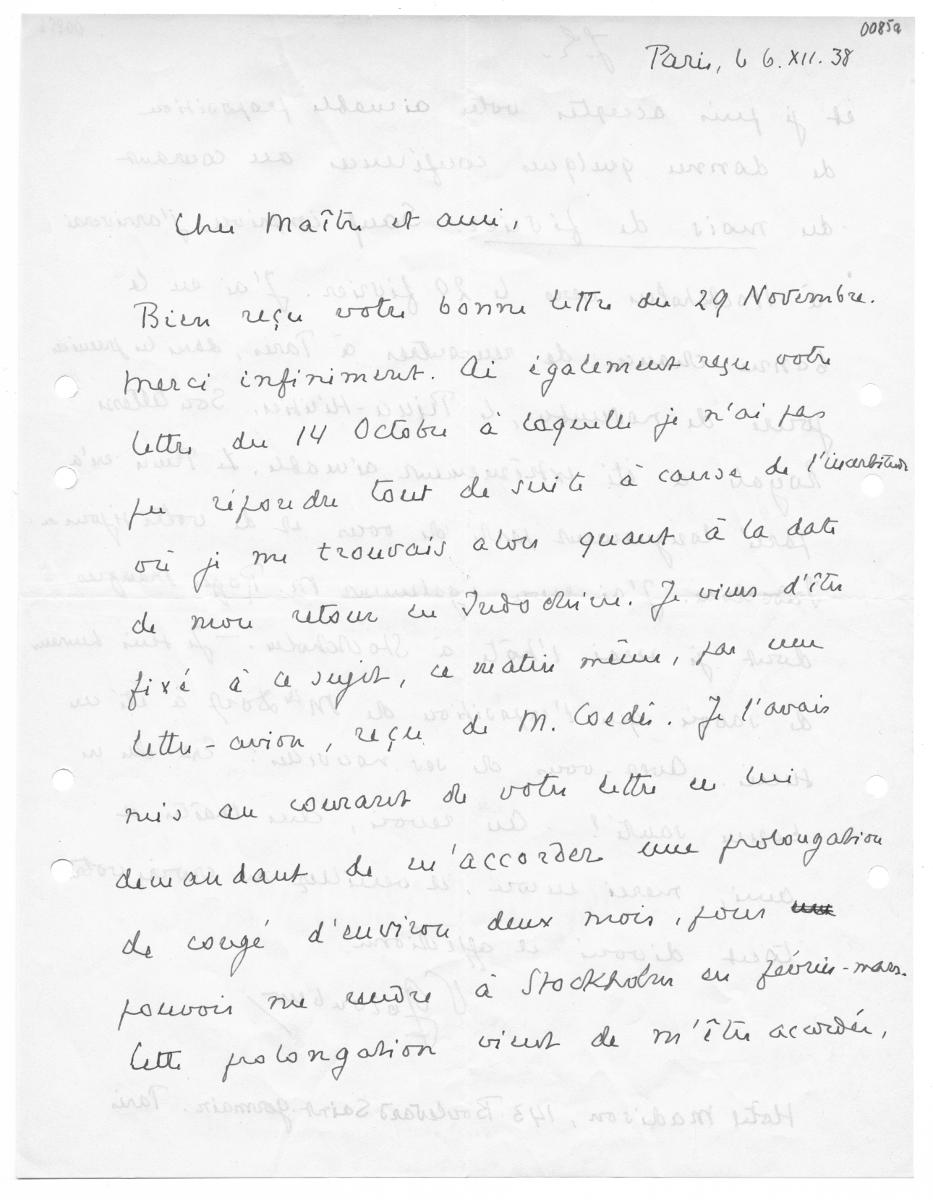 0085a
Paris, le 6.XII.38
Cher Maître et ami,
Bien reçu votre bonne lettre du 29 Novembre.
Merci infiniment. Ai également reçu votre
lettre du 14 Octobre à laquelle je n'ai pas
pu répondre tout de suite à cause de l'incertitude
où je me trouvais alors quant à la date
de mon retour en Indochine. Je viens d'être
fixé à ce sujet, ce matin même, par une
lettre-avion, reçue de M. Coedès. Je l'avais
mis au courant de votre lettre en lui
demandant de m'accorder une prolongation
de congé d'environ deux mois, pour
pouvoir me rendre à Stockholm en février-mars.
Cette prolongation vient de m'être accordée,